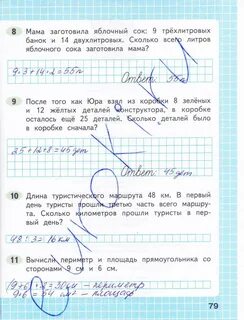 8 Мама заготовила яблочный сок: 9 трёхлитровых
банок и 14 двухлитровых. Сколько всего литров
яблочного сока заготовила мама?
9·3+14·2=55л
Ответ: 55л
9 После того как Юра взял из коробки 8 зелёных
и 12 жёлтых деталей конструктора, в коробке
осталось ещё 25 деталей. Сколько деталей было
в коробке сначала?
25+12+8=45дет
Ответ: 45дет
10 Длина туристического маршрута 48 км. В первый
день туристы прошли третью часть всего маршру-
та. Сколько километров прошли туристы в пер-
вый день?
48:3=16км
11 Вычисли периметр и площадь прямоугольника со
сторонами 9 см и 6 см.
(9+6)·2=30см-периметр
9·6=54 см²-площадь
79